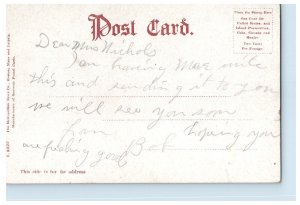 Post Card.
Place the Stamp Here
One Cent for
United States, and
Island Possessions,
Cuba, Canada and
Mexico
Two Cents
For Foreign
Dear Mrs Nichols
I am having Mae write
this and sending it to you
we will see you soon
hoping you
are feeling good Bob
This side is for the address